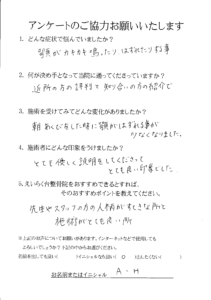 アンケートのご協力お願いいたします
1. どんな症状で悩んでいましたか？
顎がカキカキ鳴ったり はずれたりする事
2. 何が決め手となって当院に通ってくださっていますか？
近所の方の評判で 知り合いの方の紹介で
3. 施術を受けてみてどんな変化がありましたか？
朝 あくびをした時に顎がはずれる事が
少なくなりました。
4. 施術者にどんな印象をうけましたか？
とても優しく説明をしてくださって
とても良い印象でした。
5. えいらく台整骨院をおすすめできるとすれば、
そのおすすめポイントを教えてください。
先生やスタッフの方の人柄がすてきな所と
施術がとても良い所
お名前またはイニシャル A・H